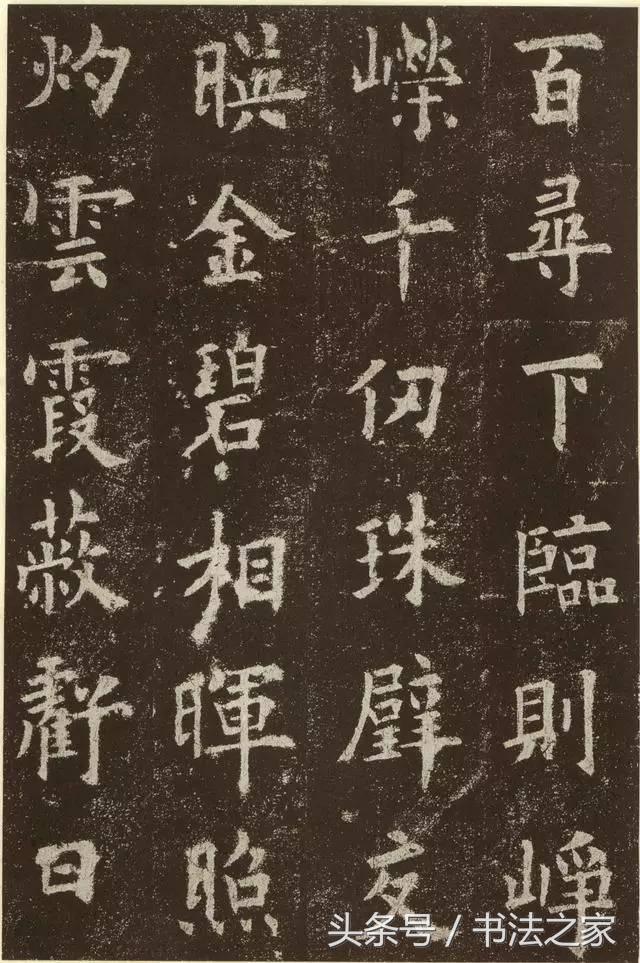 百尋下臨則崢
嶸千仞珠壁交
暎金碧相暉照
灼雲霞蔽虧日
头条号 / 书法之家